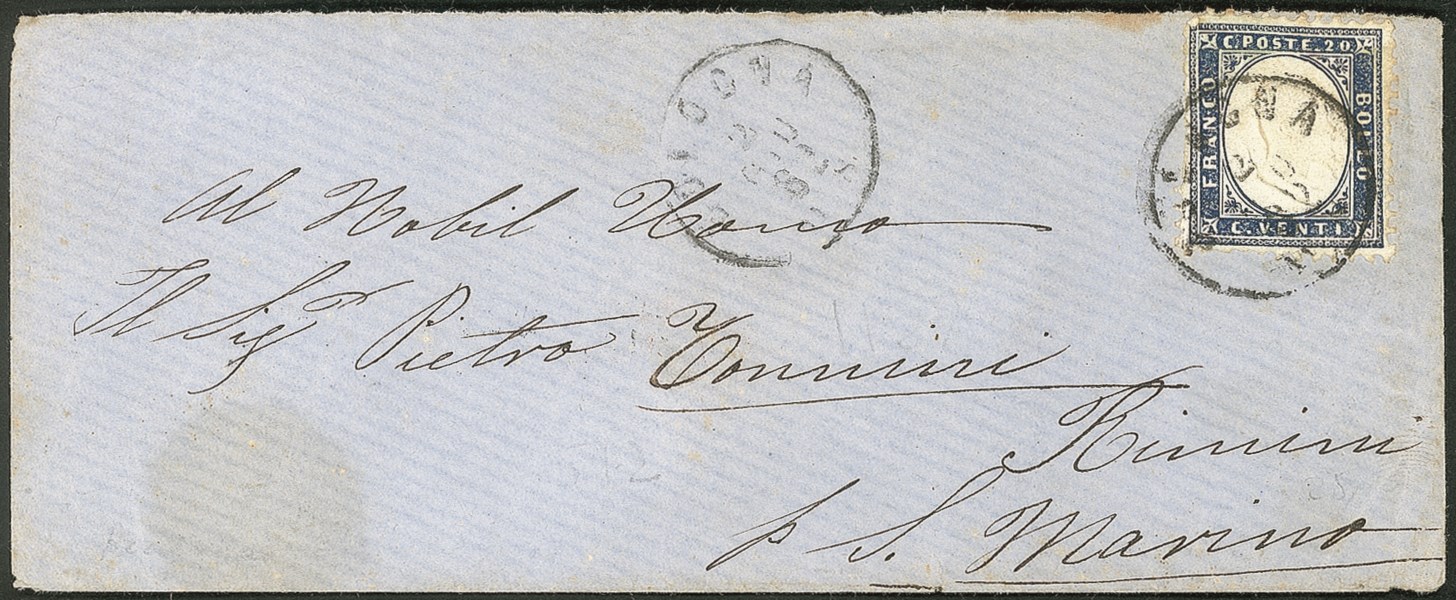 C. POSTE 20
FRANCO
BOLLO
C. VENTI
BOLOGNA
Al Nobil Uomo
Il Sigr Pietro Tonnini
Rimini
p S. Marino